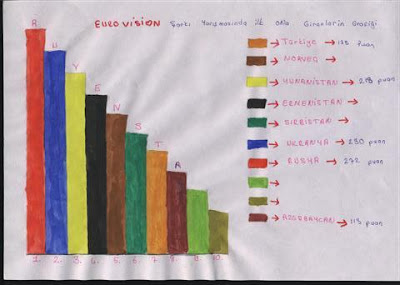 EUROVISION Şarkı Yarışmasında ilk Ona Girenlerin Grafiği
R
U
Y
E
N
S
T
A
Türkiye → 138 puan
NORVEÇ →
YUNANİSTAN → 218 puan
ERMENİSTAN →
SIRBİSTAN →
UKRANYA → 230 puan
RUSYA → 272 puan
AZERBAYCAN → 113 puan
1. 2. 3. 4. 5. 6. 7. 8. 9. 10.